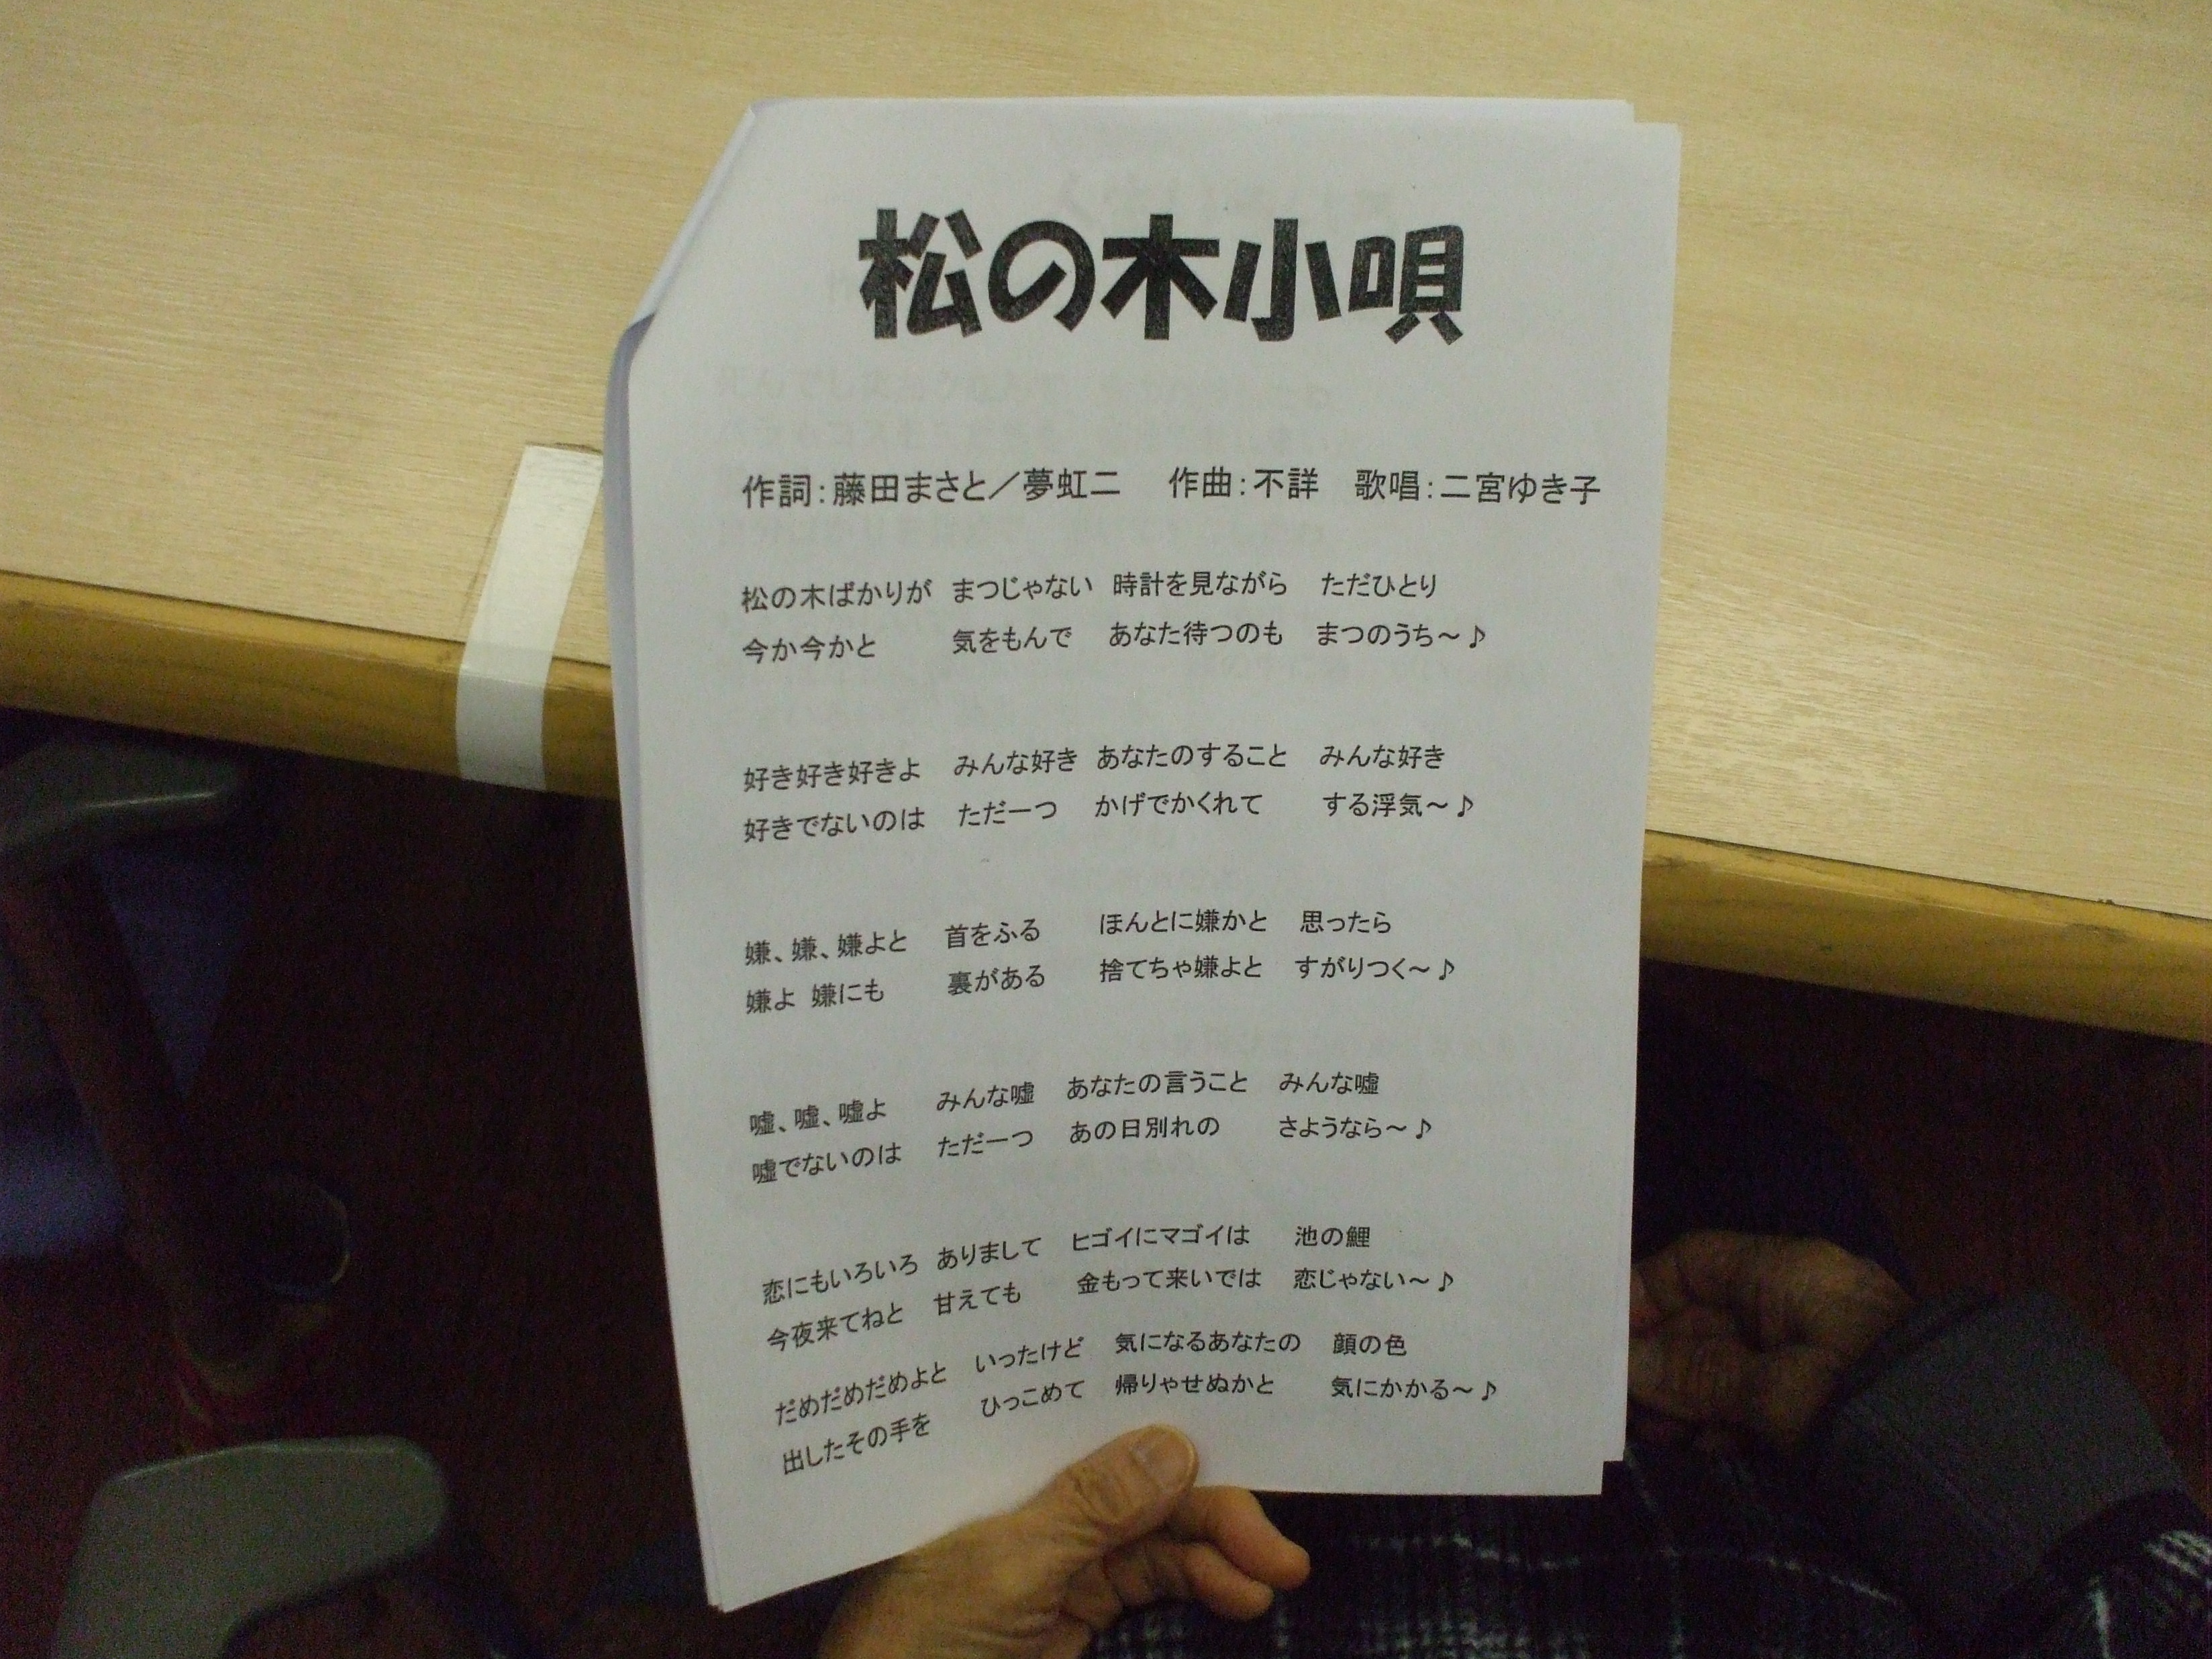 松の木小唄
作詞：藤田まさと／夢虹二　作曲：不詳　歌唱：二宮ゆき子
松の木ばかりが　まつじゃない　時計を見ながら　ただひとり
今か今かと　気をもんで　あなた待つのも　まつのうち～♪
好き好き好きよ　みんな好き　あなたのすること　みんな好き
好きでないのは　ただ一つ　かげでかくれて　する浮気～♪
嫌、嫌、嫌よと　首をふる　ほんとに嫌かと　思ったら
嫌よ 嫌にも　裏がある　捨てちゃ嫌よと　すがりつく～♪
嘘、嘘、嘘よ　みんな嘘　あなたの言うこと　みんな嘘
嘘でないのは　ただ一つ　あの日別れの　さようなら～♪
恋にもいろいろ　ありまして　ヒゴイにマゴイは　池の鯉
今夜来てねと　甘えても　金もって来いでは　恋じゃない～♪
だめだめだめよと　いったけど　気になるあなたの　顔の色
出したその手を　ひっこめて　帰りゃせぬかと　気にかかる～♪